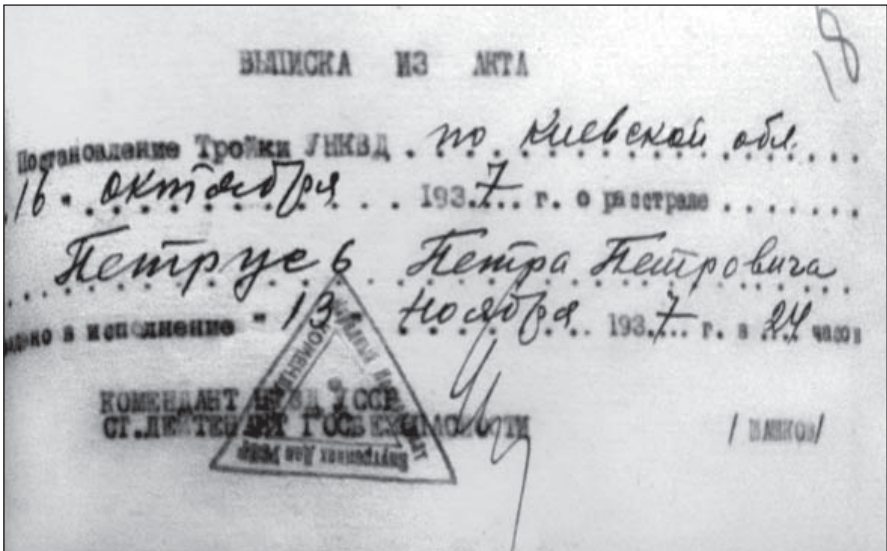 18
ВЫПИСКА ИЗ АКТА
Постановление Тройки УНКВД . по Киевской обл.
16 " октября 1937 г. о расстреле
Петрусь Петра Петровича
в исполнение " 13 " ноября 1937 г. в 24 часов
КОМЕНДАНТ НКВД УССР
СТ.ЛЕЙТЕНАНТ ГОСБЕЗОПАСНОСТИ / ШАШКОВ/
Внутренних Дел УССР
КОМЕНДАНТ